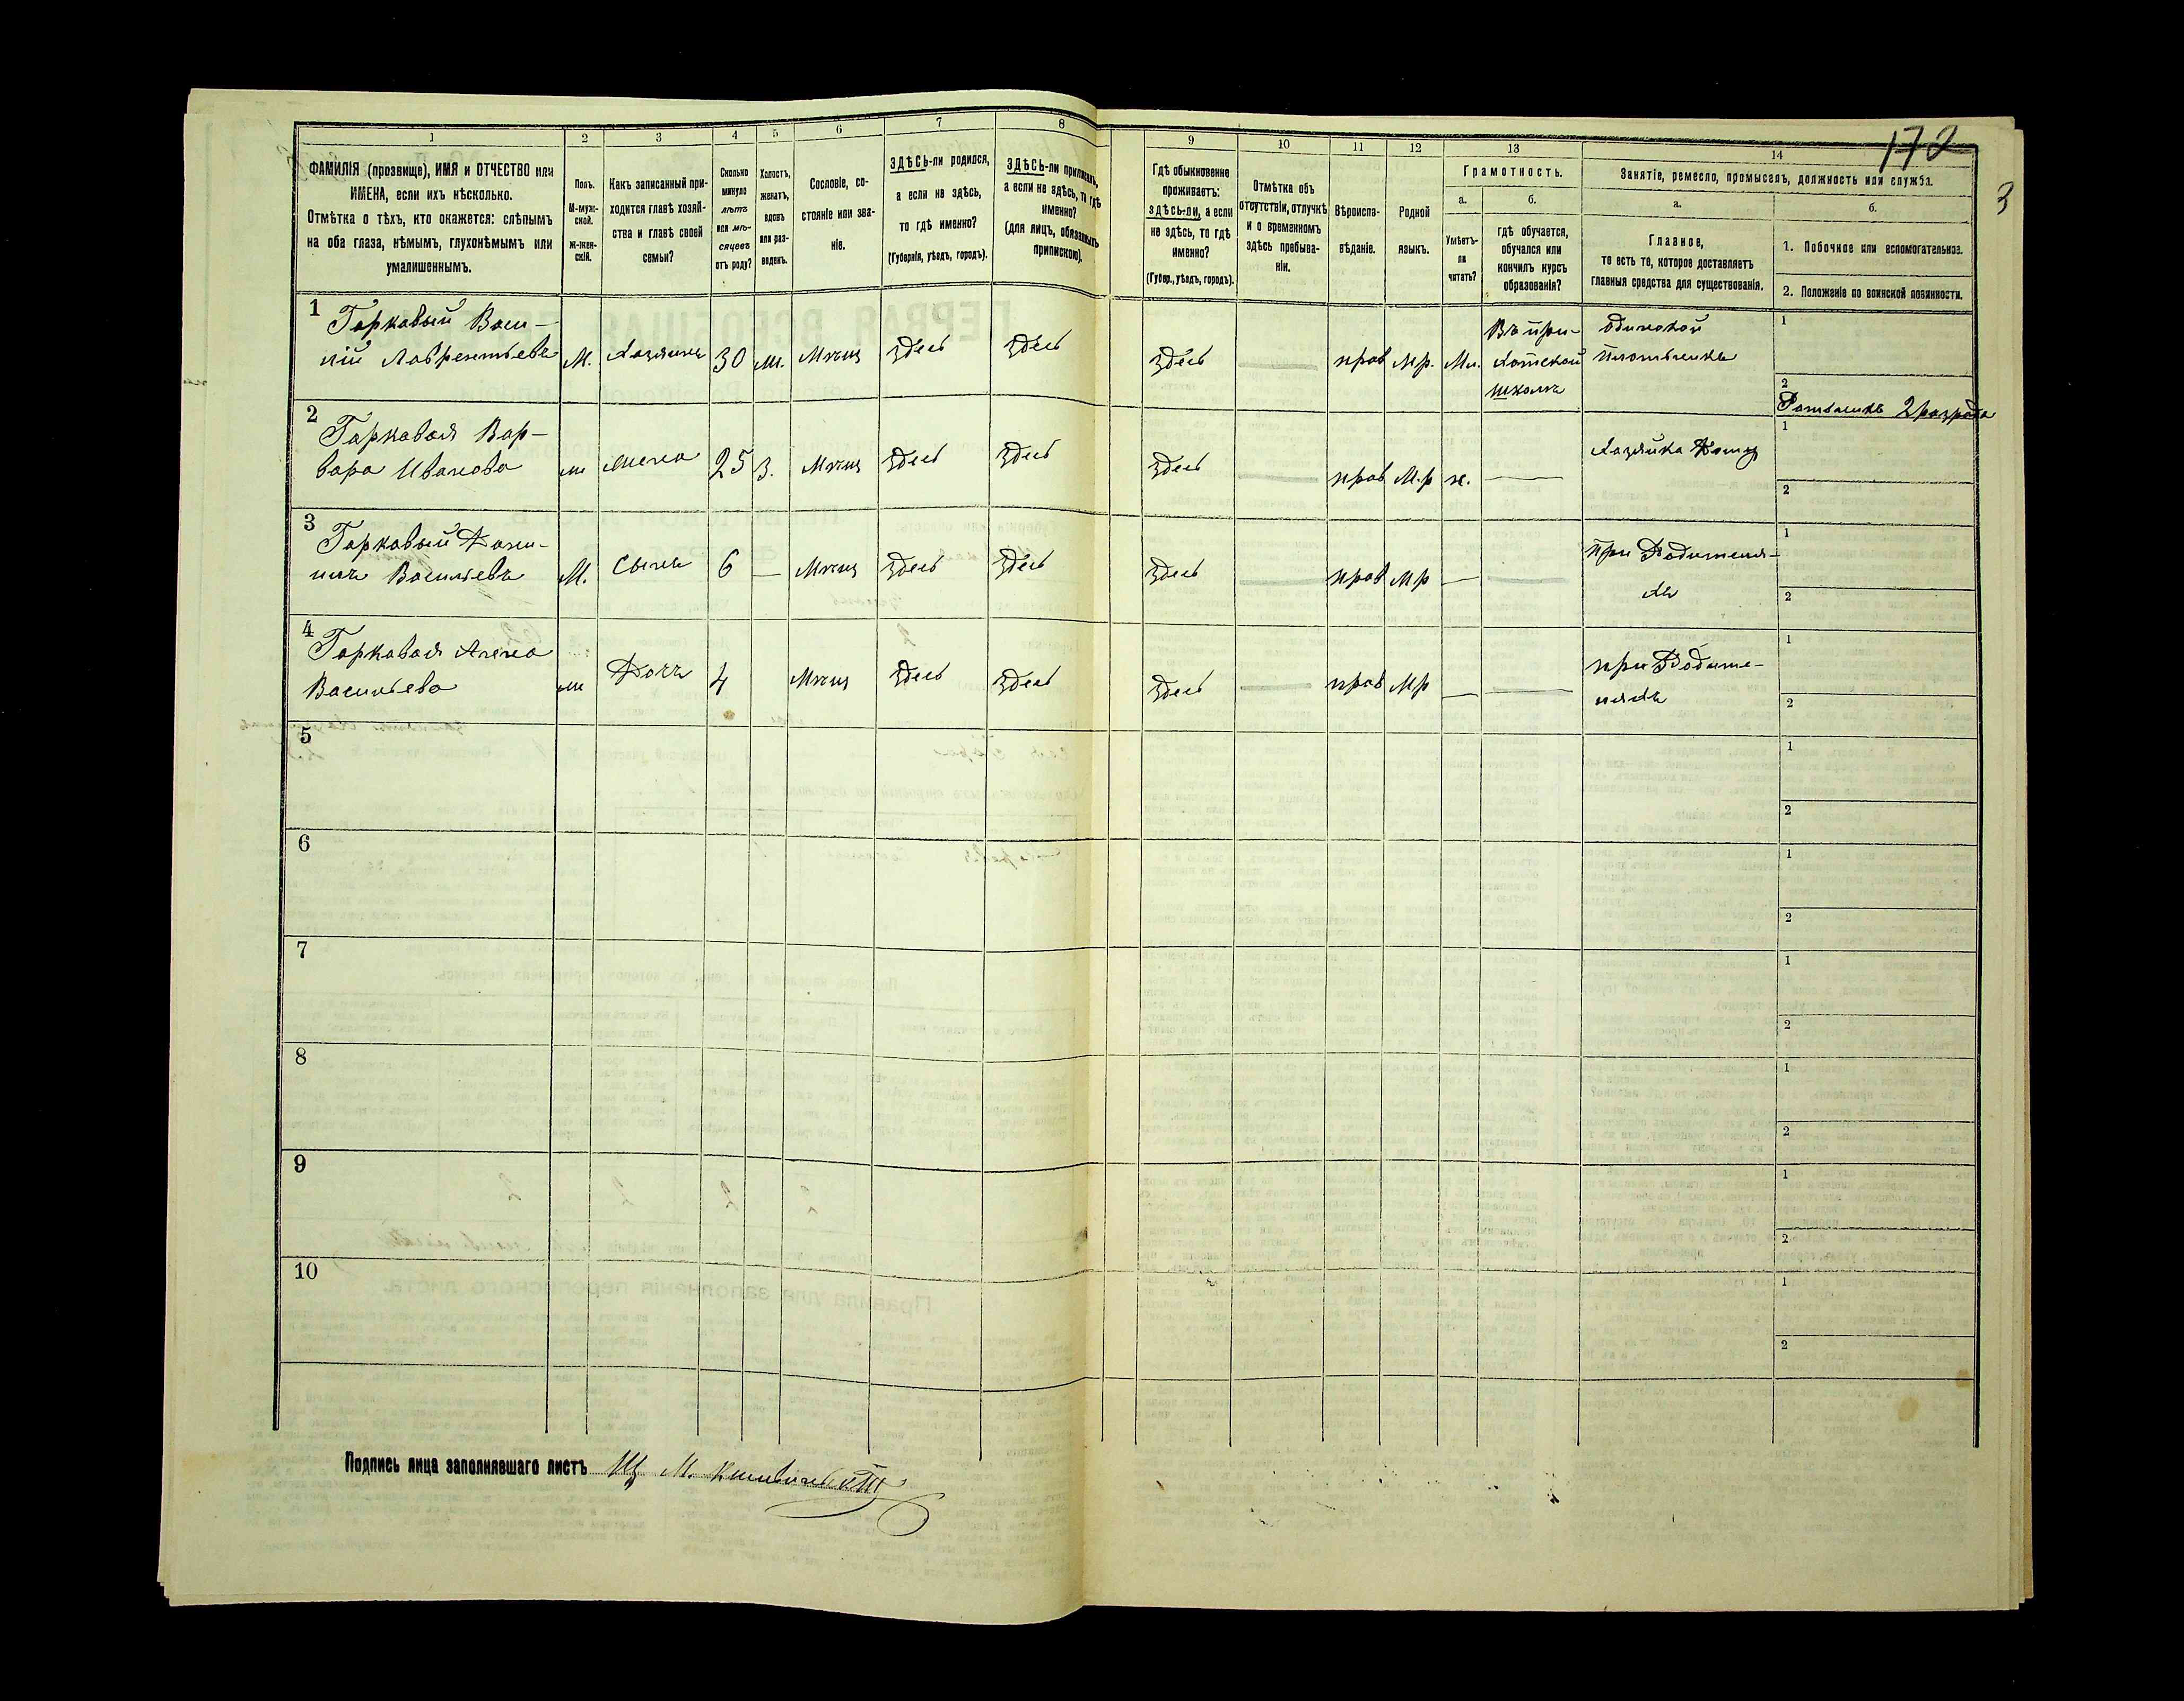 172
3
1
2
3
4
5
6
7
8
9
10
11
12
13
14
ФАМИЛІЯ (прозвище), ИМЯ и ОТЧЕСТВО или
ИМЕНА, если ихъ нѣсколько.
Отмѣтка о тѣхъ, кто окажется: слѣпымъ
на оба глаза, нѣмымъ, глухонѣмымъ или
умалишеннымъ.
Полъ.
М-муж-
ской.
ж-жен-
скій.
Какъ записанный при-
ходится главѣ хозяй-
ства и главѣ своей
семьи?
Сколько
минуло
лѣтъ
или мѣ-
сяцевъ
отъ роду?
Холостъ,
женатъ,
вдовъ
или раз-
веденъ.
Сословіе, со-
стояніе или зва-
ніе.
ЗДѢСЬ-ли родился,
а если не здѣсь,
то гдѣ именно?
(Губернія, уѣздъ, городъ).
ЗДѢСЬ-ли приписанъ,
а если не здѣсь, то гдѣ
именно?
(для лицъ, обязанныхъ
припискою).
Гдѣ обыкновенно
проживаетъ:
здѣсь-ли, а если
не здѣсь, то гдѣ
именно?
(Губер., уѣздъ, городъ).
Отмѣтка объ
отсутствіи, отлучкѣ
и о временномъ
здѣсь пребыва-
ніи.
Вѣроиспо-
вѣданіе.
Родной
языкъ.
Грамотность.
а.
Умѣетъ-
ли
читать?
б.
гдѣ обучается,
обучался или
кончилъ курсъ
образованія?
Занятіе, ремесло, промыселъ, должность или служба.
а.
Главное,
то есть то, которое доставляетъ
главныя средства для существованія.
б.
1. Побочное или вспомогательное.
2. Положеніе по воинской повинности.
1 Горковый Васи-
лій Лаврентьевъ М. Хозяинъ 30 ж. Мѣщ Здесь Здесь Здесь прав М.р.
Въ при-
ходской
школѣ
1
2 Ратникъ 2 разряда
2 Горковая Вар-
вара Иванова ж жена 25 З. Мѣщ Здесь Здесь Здесь прав М.р н.
Хозяйка
1
2
3 Горковый
Васильевъ М. Сынъ 6 — Мѣщ Здесь Здесь Здесь прав М р —
при Родителя-
хъ
1
2
4 Горковая Анна
Васильева ж Дочь 4 Мѣщ Здесь Здесь Здесь прав М р —
при Родите-
ляхъ
1
2
5
1
2
6
1
2
7
1
2
8
1
2
9
1
2
10
1
2
Подпись лица заполнявшаго листъ